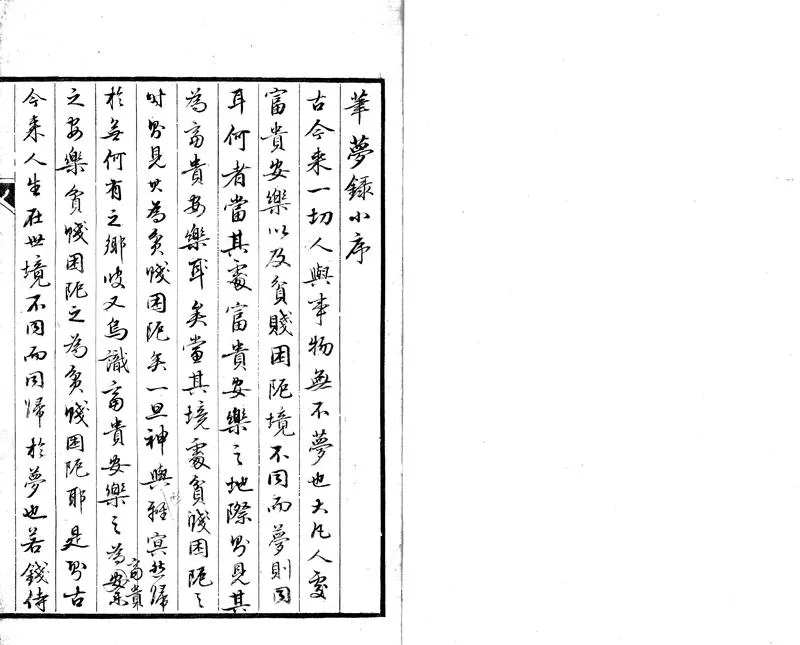 華夢錄小序
古今來一切人與事物無不夢也大凡人處
富貴安樂以及貧賤困阨境不同而夢則同
耳何者當其處富貴安樂之地際則見其
為富貴安樂耳矣當其境處貧賤困阨之
時則見其為貧賤困阨矣一旦神與形寞然歸
於無何有之鄉彼又烏識富貴安樂之為富貴安樂
之安樂貧賤困阨之為貧賤困阨耶是則古
今來人生在世境不同而同歸於夢也若錢侍